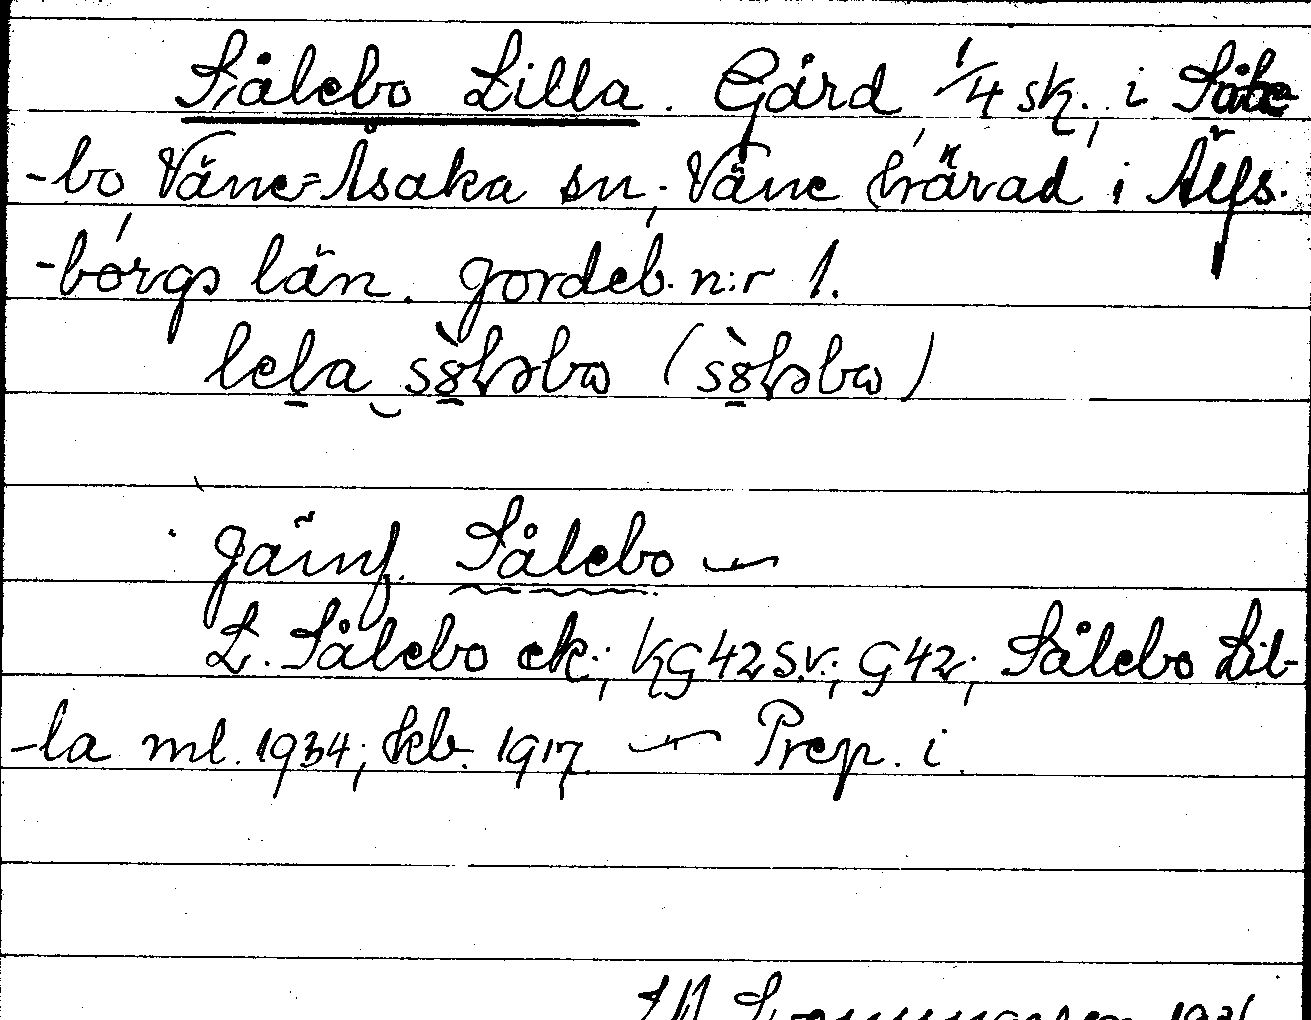 Sålebo Lilla. Gård 1/4 sk., i Såle-
-bo Väne=Åsaka sn, Väne härad i Älfs-
-borgs län. Jordeb. n:r 1.
lela
Jämf. Sålebo —
L. Sålebo ek.; KG42 S.V.; G42; Sålebo Lil-
-la ml. 1934; kb. 1917 — Prep. i.